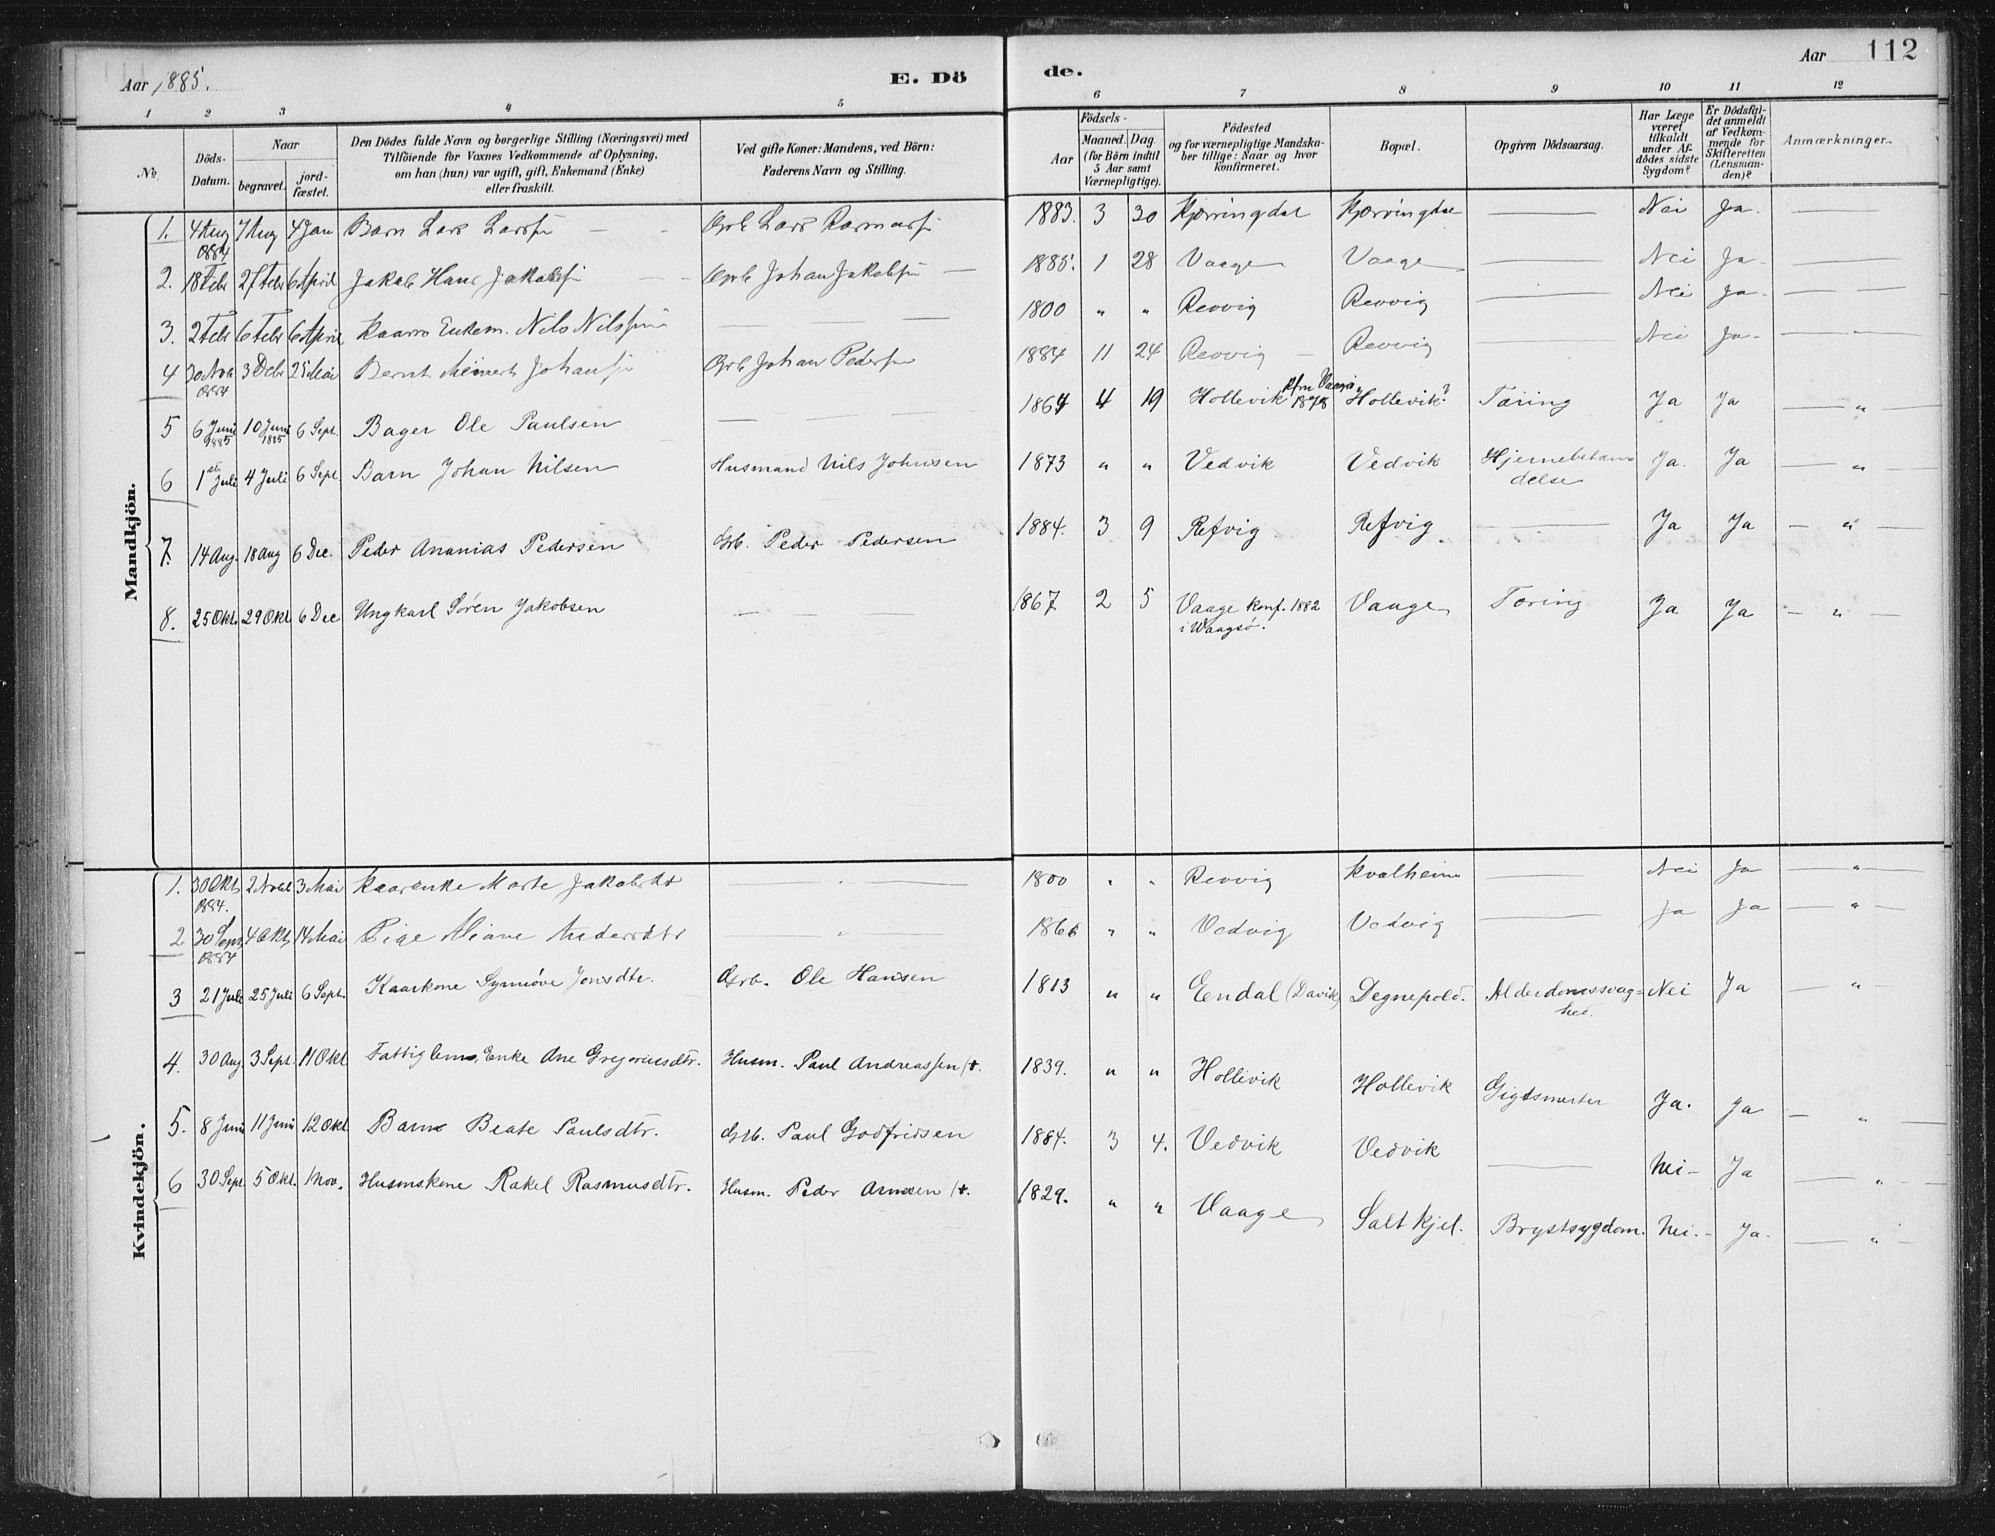 Aar 1885.
E. Dö
de.
Aar
112
1 2 3 4 5 6 7 8 9 10 11 12
No.
Döds-Datum.
Naar
begravet.
jord-fæstet.
Den Dödes fulde Navn og borgerlige Stilling (Næringsvei) med
Tilföiende for Voxnes Vedkommende af Oplysning,
om han (hun) var ugift, gift, Enkemand (Enke)
eller fraskilt.
Ved gifte Koner: Mandens, ved Börn:
Faderens Navn og Stilling.
Födsels-
Aar
Maaned. Dag.
(for Börn indtil
5 Aar samt
Værnepligtige).
Födested
og for værnepligtige Mandska-
ber tillige: Naar og hvor
konfirmeret.
Bopæl.
Opgiven Dödsaarsag.
Har Læge
været
tilkaldt
under Af-
dödes sidste
Sygdom?
Er Dödsfal-
det anmeldt
af Vedkom-
mende for
Skifteretten
(Lensman-
den)?
Anmærkninger.
Mandkjön.
1. 4 Aug 1884 7 Aug 4 Jan Barn Lars Larssen Grb Lars 1883. 3 30 Kjærringdal Kjærringdal — Nei Ja. —
2. 18 Febr 27 Febr 6 April Jakob Hans Jakobsen Grb Johan Jakobsen 1885. 1 28 Vaage Vaage — Nei Ja. —
3. 2 Febr 6 Febr 6 April Kaarm Enkem. Nils Nilssen — 1800 " " Revvig Revvig — Nei Ja. —
4 30 Nov 1884 3 Debr 25 Mai Bernt Meinert Johansen Grb Johan Pedersen 1884 11 24 Revvig Revvig — Nei Ja. —
5 6 Juni 1885 10 Juni 1885 6 Sept. Bager Ole Paulsen — 1864 4 19 Hollevik 1878 Hollevik? Tæring Ja Ja "
6 1ste Juli 4 Juli 6 Sept. Barn Johan Nilsen Husmand Nils Johnsen 1873 " " Vedvik Vedvik Hjernebetæn-
delse Ja. Ja "
7. 14 Aug. 18 Aug 6 Dec. Peder Ananias Pedersen Grb. Peder Pedersen 1884. 3 9 Refvig Refvig. — Ja Ja "
8. 25 Okt. 29 Okt 6 Dec Ungkarl Sören Jakobsen — 1867 2 5 Vaage Konf. 1882
i Waagsö. Vaage Tæring Ja Ja "
Kvindekjön.
1. 30 Okt 1884. 2 Novb 3 Mai Kaarenke Marte Jakobsdtr — 1800 " " Revvig Kvalheim — Nei Ja "
2 30 Sept 1884 4 Okt 14 Mai Pige Andersdtr — 1866 " " Vedvig Vedvig — Ja Ja "
3 21 Juli 25 Juli 6 Sept. Kaarkone Synnöve Jonsdtr. Grb. Ole Hansen 1813 " " Endal (Davik) Degnepold. Alderdomssvag=
hed. Nei Ja "
4. 30 Aug. 3 Sept. 11 Okt Fattiglem, Enke Ane Gregoriusdtr. Husm. Paul Andreassen /+. 1839. " " Hollevik Hollevik Gigtsmerter Ja. Ja "
5. 8 Juni 11 Juni 12 Okt Barn Beate Paulsdtr. Grb. Paul Godfridsen 1884. 3 4. Vedvik Vedvik — Nei — Ja "
6 30 Sept. 5 Okt. 1 Nov. Husmskone Rakel Rasmusdtr. Husm. Peder Arnesen /+. 1829. " " Vaage Saltkjel. Brystsygdom. Nei. — Ja. "